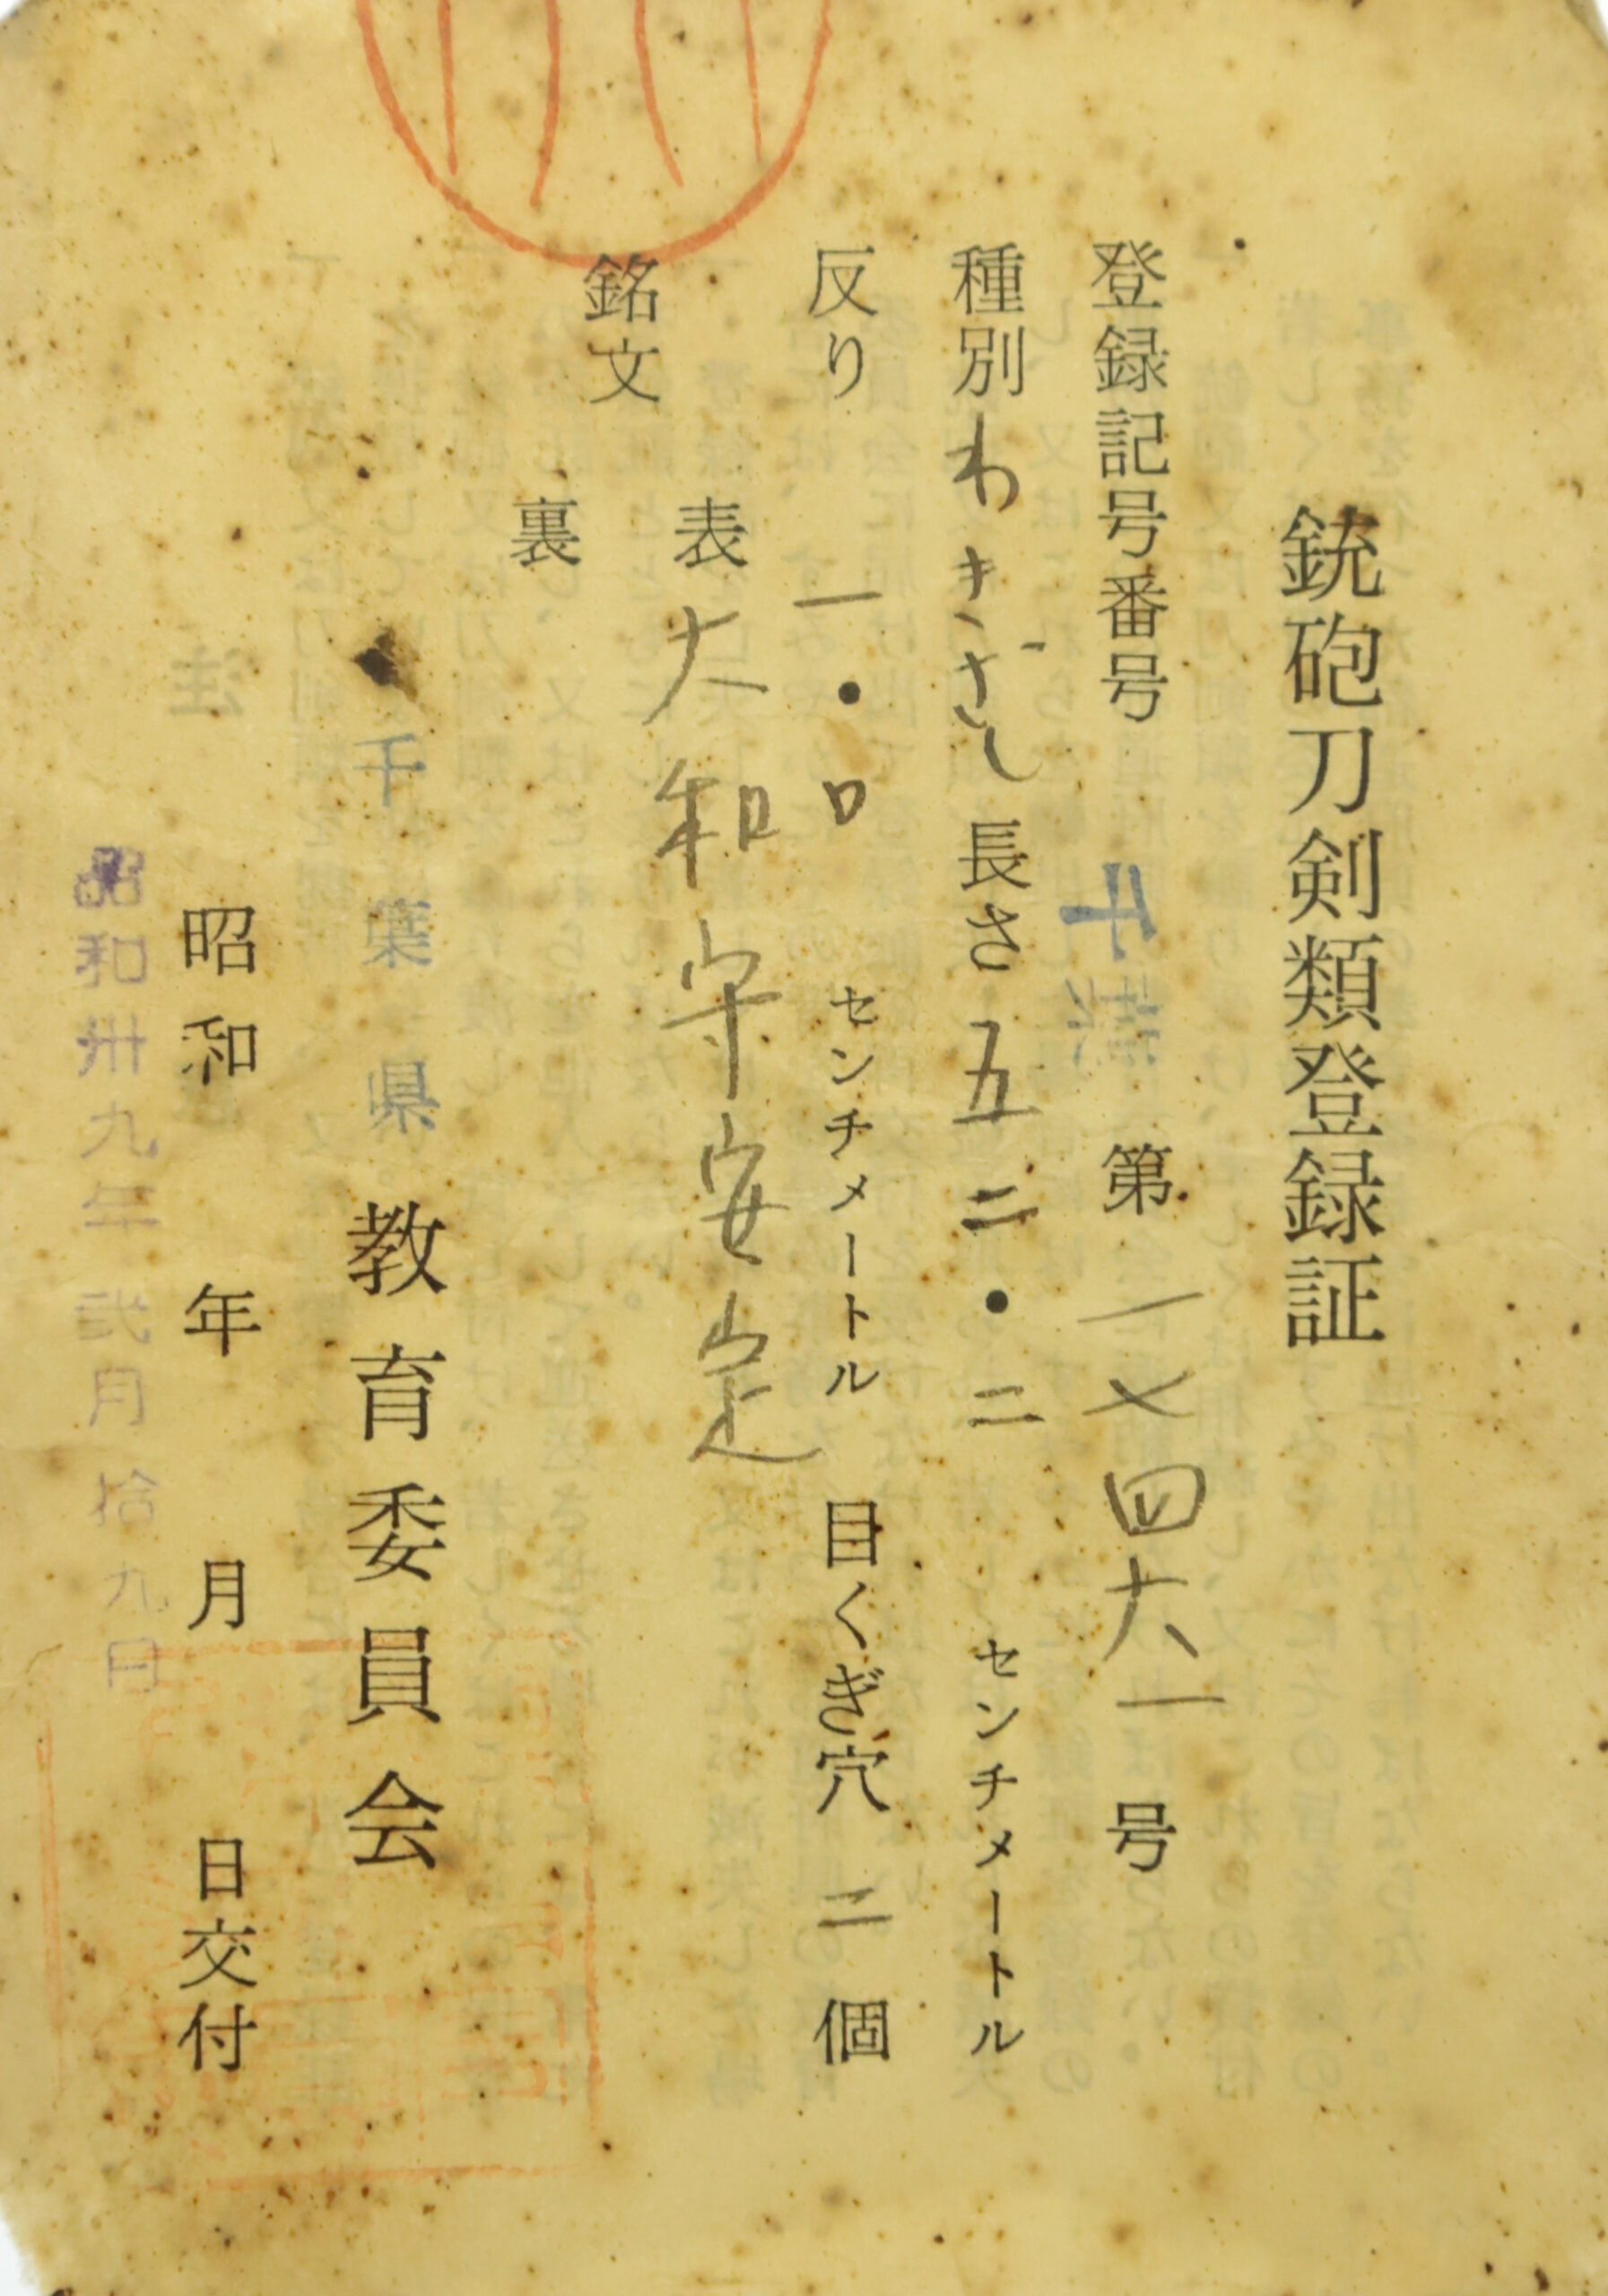 銃砲刀剣類登録証
登録記号番号 千葉 第一七四六一号
種別 わきざし 長さ 五二・二 センチメートル
反り 一・〇 センチメートル 目くぎ穴 二 個
銘文
表 大和守安定
裏
千葉県教育委員会
昭和 年 月 日交付
昭和卅九年弐月拾九日